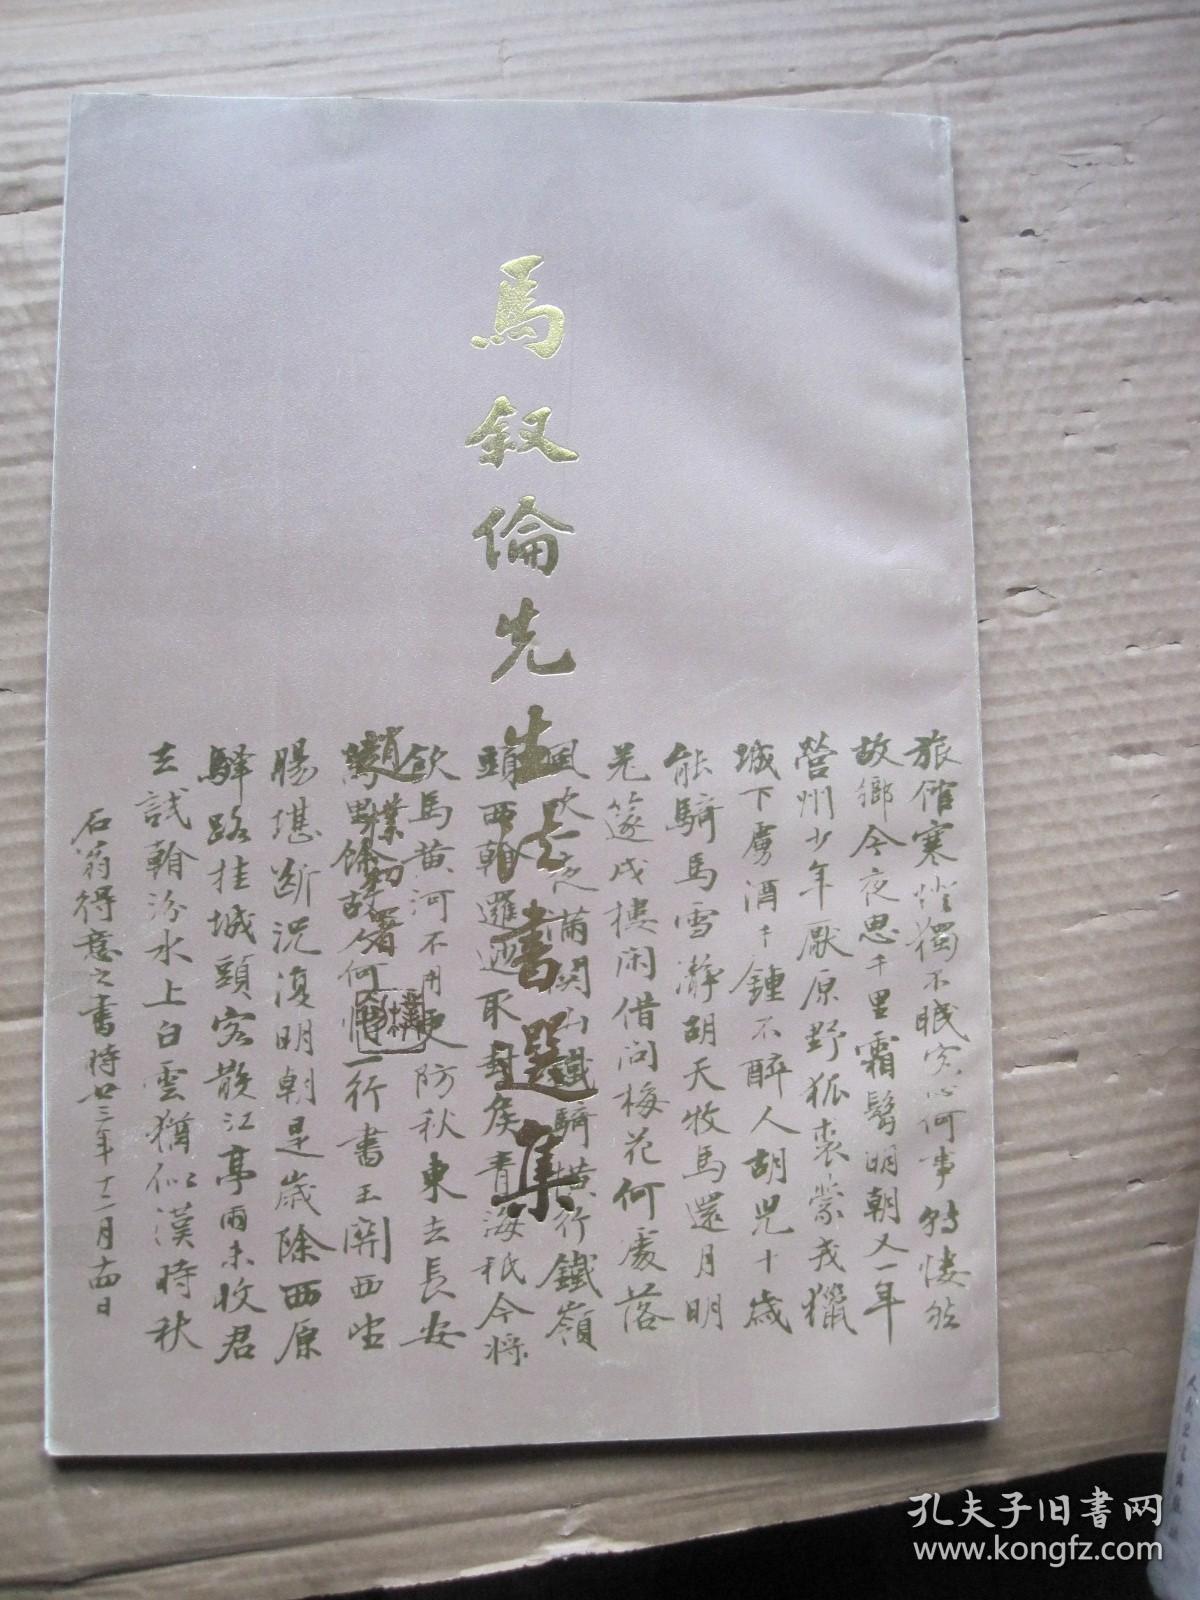 馬叙倫先生法書選集
趙樸初署
旅館寒燈獨不眠客心何事轉悽然
故鄉今夜思千里霜鬢明朝又一年
營州少年厭原野狐裘蒙戎獵
城下虜酒千鍾不醉人胡兒十歲
能騎馬雪瀞胡天牧馬還月明
羌篴戍樓閑借問梅花何處落
風吹一夜滿關山鐵騎橫行鐵嶺
頭西翰邏逤取封侯青海祇今將
飲馬黄河不用更防秋東去長安
萬里餘故人何惜一行書玉關西望
腸堪斷況復明朝是歲除西原
驛路挂城頭客散江亭雨未收君
去試翰汾水上白雲猶似漢時秋
石翁得意之書時廿三年十二月十四日
孔夫子旧书网
www.kongfz.com